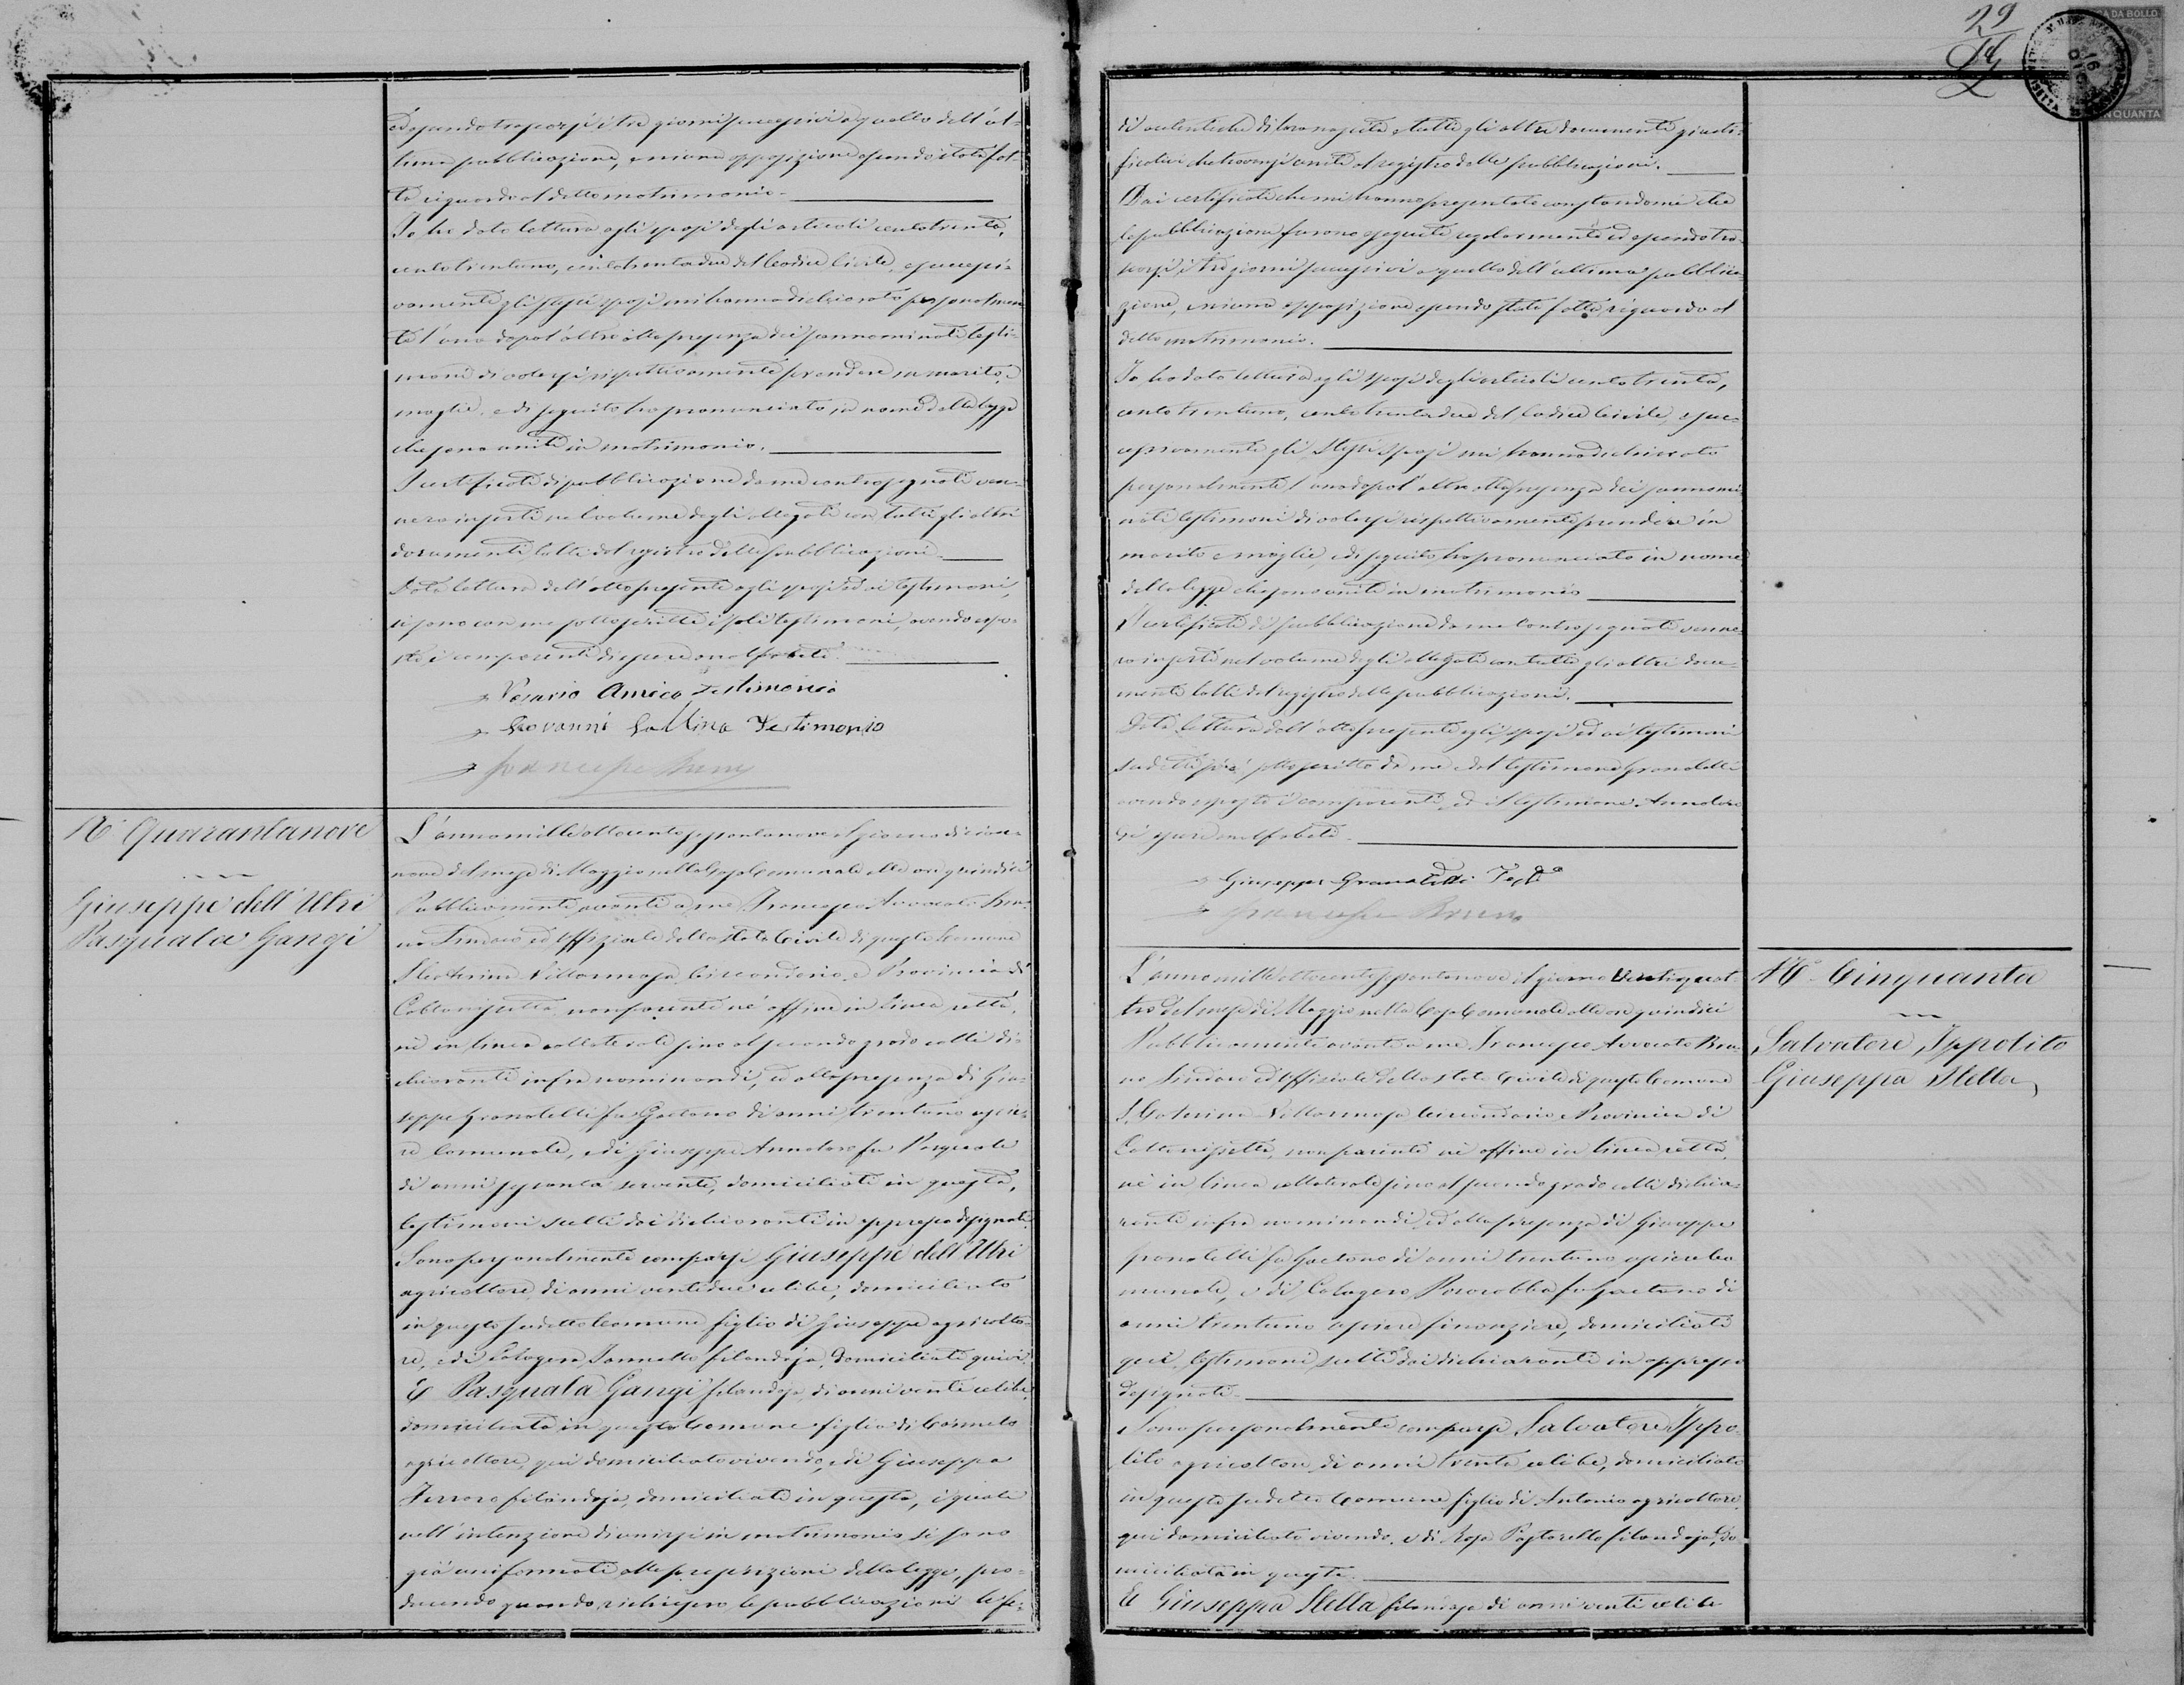 ed essendo trascorsi i tre giorni successivi a quello dell'ul-
tima pubblicazione, e niuna opposizione essendo stata fat-
ta riguardo al detto matrimonio.
Io ho dato lettura agli sposi degli articoli centotrenta,
centotrentuno, centotrentadue del Codice Civile, e successi-
vamente gli stessi sposi mi hanno dichiarato personalmen
te l'uno dopo l'altro alla presenza dei sunnominati testi-
moni di volersi rispettivamente prendere in marito, e
moglie, e di seguito ho pronunciato in nome della legge
che sono uniti in matrimonio.
I certificati di pubblicazione da me controsegnati ven-
nero inserti nel volume degli allegati con tutti gli altri
documenti tolti dal registro delle pubblicazioni.
Data lettura dell'atto presente agli sposi ed ai testimoni,
si sono con me sottoscritti i soli testimoni, avendo espo-
sto i comparenti di essere analfabeti.
Rosario Amico Testimonio
Giovanni Gallina Testimonio
Francesco Bruno
N.° Quarantanove
Giuseppe dell'Utri
Pasquala Gangi
L'anno mille ottocento settantanove il giorno dician-
nove del mese di Maggio nella Casa Comunale alle ore quindici
Pubblicamente avanti a me Francesco Avvocato Bru-
no Sindaco ed Uffiziale dello stato Civile di questo Comune
S. Caterina Villarmosa, Circondario, e Provincia di
Caltanissetta, non parente nè affine in linea retta,
nè in linea collaterale sino al secondo grado colli di-
chiaranti infra nominandi, ed alla presenza di Giu-
seppe Granatelli fu Gaetano di anni trentuno uscie-
re Comunale, e di Giuseppe Annaloro fu Pasquale
di anni sessanta servente, domiciliati in questa,
testimoni scelti dai dichiaranti in appresso designati
Sono personalmente comparsi Giuseppe dell'Utri
agricoltore, di anni ventidue celibe, domiciliato
in questo sudetto Comune figlio di Giuseppe agricolto-
re, e di Calogera Iannello filandaja, domiciliati quivi
E Pasquala Gangi filandaja, di anni venti celibe,
domiciliata in questo Comune figlia di Carmelo
agricoltore, qui domiciliato vivendo, e di Giuseppa
Ferraro filandaja, domiciliata in questa, i quali
nell'intenzione di unirsi in matrimonio si sono
già uniformati alle prescrizioni della legge, pro-
ducendo quando richiesero le pubblicazioni le fe-
29
di autentiche di loro nascita e tutti gli altri documenti giusti-
ficativi che trovansi uniti al registro delle pubblicazioni.
Dai certificati che mi hanno presentato constandomi che
le pubblicazioni furono eseguite regolarmente ed essendo tra-
scorsi i tre giorni successivi a quello dell'ultima pubblica-
zione, e niuna opposizione essendo stata fatta riguardo al
detto matrimonio.
Io ho dato lettura agli sposi degli articoli centotrenta,
centotrentuno, centotrentadue del Codice Civile, e suc-
cessivamente gli stessi sposi mi hanno dichiarato
personalmente l'uno dopo l'altro alla presenza dei sunnomi
nati testimoni di volersi rispettivamente prendere in
marito e moglie, e di seguito ho pronunciato in nome
della legge che sono uniti in matrimonio
I certificati di pubblicazione da me controsegnati venne-
ro inserti nel volume degli allegati con tutti gli altri docu-
menti tolti dal registro delle pubblicazioni.
Data lettura dell'atto presente agli sposi ed ai testimoni
sudetti si è sottoscritto da me e dal testimone Granatelli
avendo esposto i comparenti, ed il testimone Annaloro
di essere analfabeti.
Giuseppe Granatelli Test.°
Francesco Bruno
L'anno mille ottocento settantanove il giorno Ventiquat-
tro del mese di Maggio nella Casa Comunale alle ore quindici
Pubblicamente avanti a me Francesco Avvocato Bru-
no Sindaco ed Uffiziale dello stato Civile di questo Comune
S. Caterina Villarmosa Circondario e Provincia di
Caltanissetta, non parente nè affine in linea retta,
nè in linea collaterale sino al secondo grado colli dichia-
ranti infra nominandi, ed alla presenza di Giuseppe
Granatelli fu Gaetano di anni trentuno usciere Co
munale, e di Calogero Porrovecchio fu Gaetano di
anni trentuno usciere finanziere, domiciliati
qui, testimoni scelti dai dichiaranti in appresso
designati
Sono personalmente comparsi Salvatore Ippo-
lito agricoltore, di anni trenta celibe, domiciliato
in questo sudetto Comune figlio di Antonio agricoltore,
qui domiciliato vivendo, e di Rosa Pastorello filandaja, do
miciliata in questa.
E Giuseppa Stella filandaja di anni venti celibe
N.° Cinquanta
Salvatore Ippolito
Giuseppa Stella